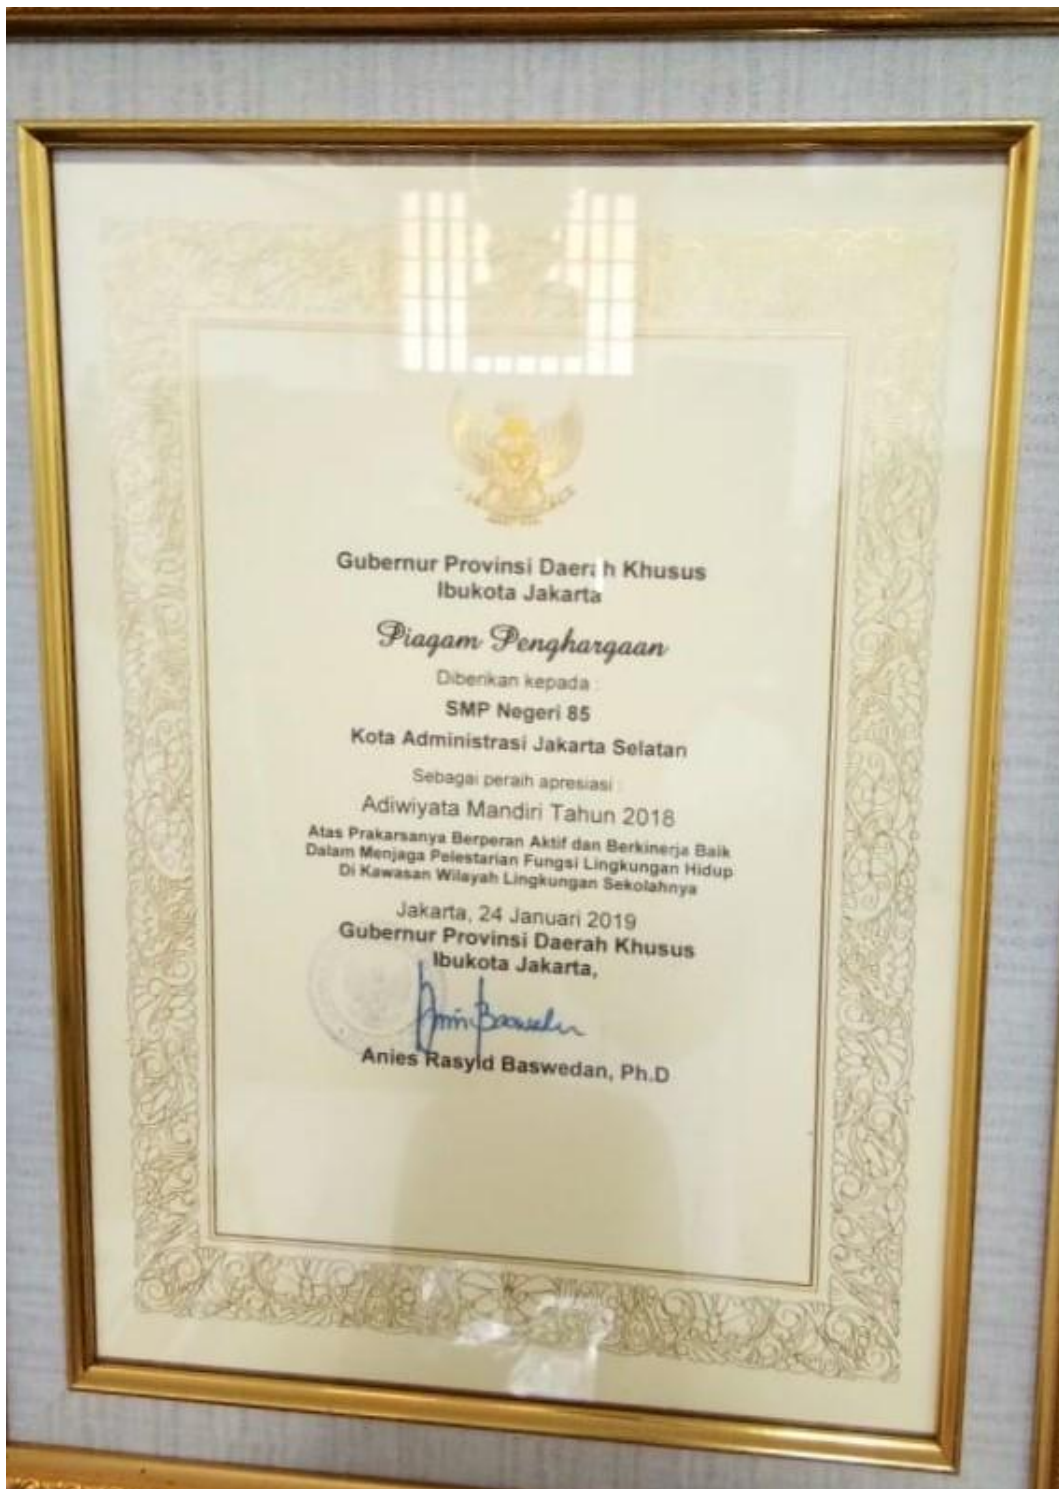 Gubernur Provinsi Daerah Khusus
Ibukota Jakarta
Piagam Penghargaan
Diberikan kepada :
SMP Negeri 85
Kota Administrasi Jakarta Selatan
Sebagai peraih apresiasi :
Adiwiyata Mandiri Tahun 2018
Atas Prakarsanya Berperan Aktif dan Berkinerja Baik
Dalam Menjaga Pelestarian Fungsi Lingkungan Hidup
Di Kawasan Wilayah Lingkungan Sekolahnya
Jakarta, 24 Januari 2019
Gubernur Provinsi Daerah Khusus
Ibukota Jakarta,
Anies Rasyid Baswedan, Ph.D